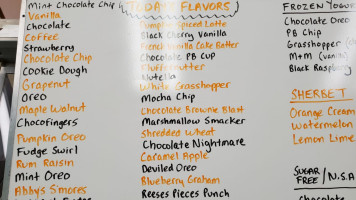 Mint Chocolate Chip
Vanilla
Chocolate
Coffee
Strawberry
Chocolate Chip
Cookie Dough
Grapenut
Oreo
Maple Walnut
Chocofingers
Pumpkin Oreo
Fudge Swirl
Rum Raisin
Mint Oreo
Abbys S'mores
TODAYS FLAVORS
Pumpkin Spiced Latte
Black Cherry Vanilla
French Vanilla Cake Batter
Chocolate PB Cup
Fluffernutter
Nutella
White Grasshopper
Mocha Chip
Chocolate Brownie Blast
Marshmallow Smacker
Shredded Wheat
Chocolate Nightmare
Caramel Apple
Deviled Oreo
Blueberry Graham
Reeses Pieces Punch
FROZEN YOGUR
Chocolate Oreo
PB Chip
Grasshopper
M+M (vanil
Black Raspberry
SHERBET
Orange Cream
Watermelon
Lemon Lime
SUGAR
FREE / N.S.A
Chocolate